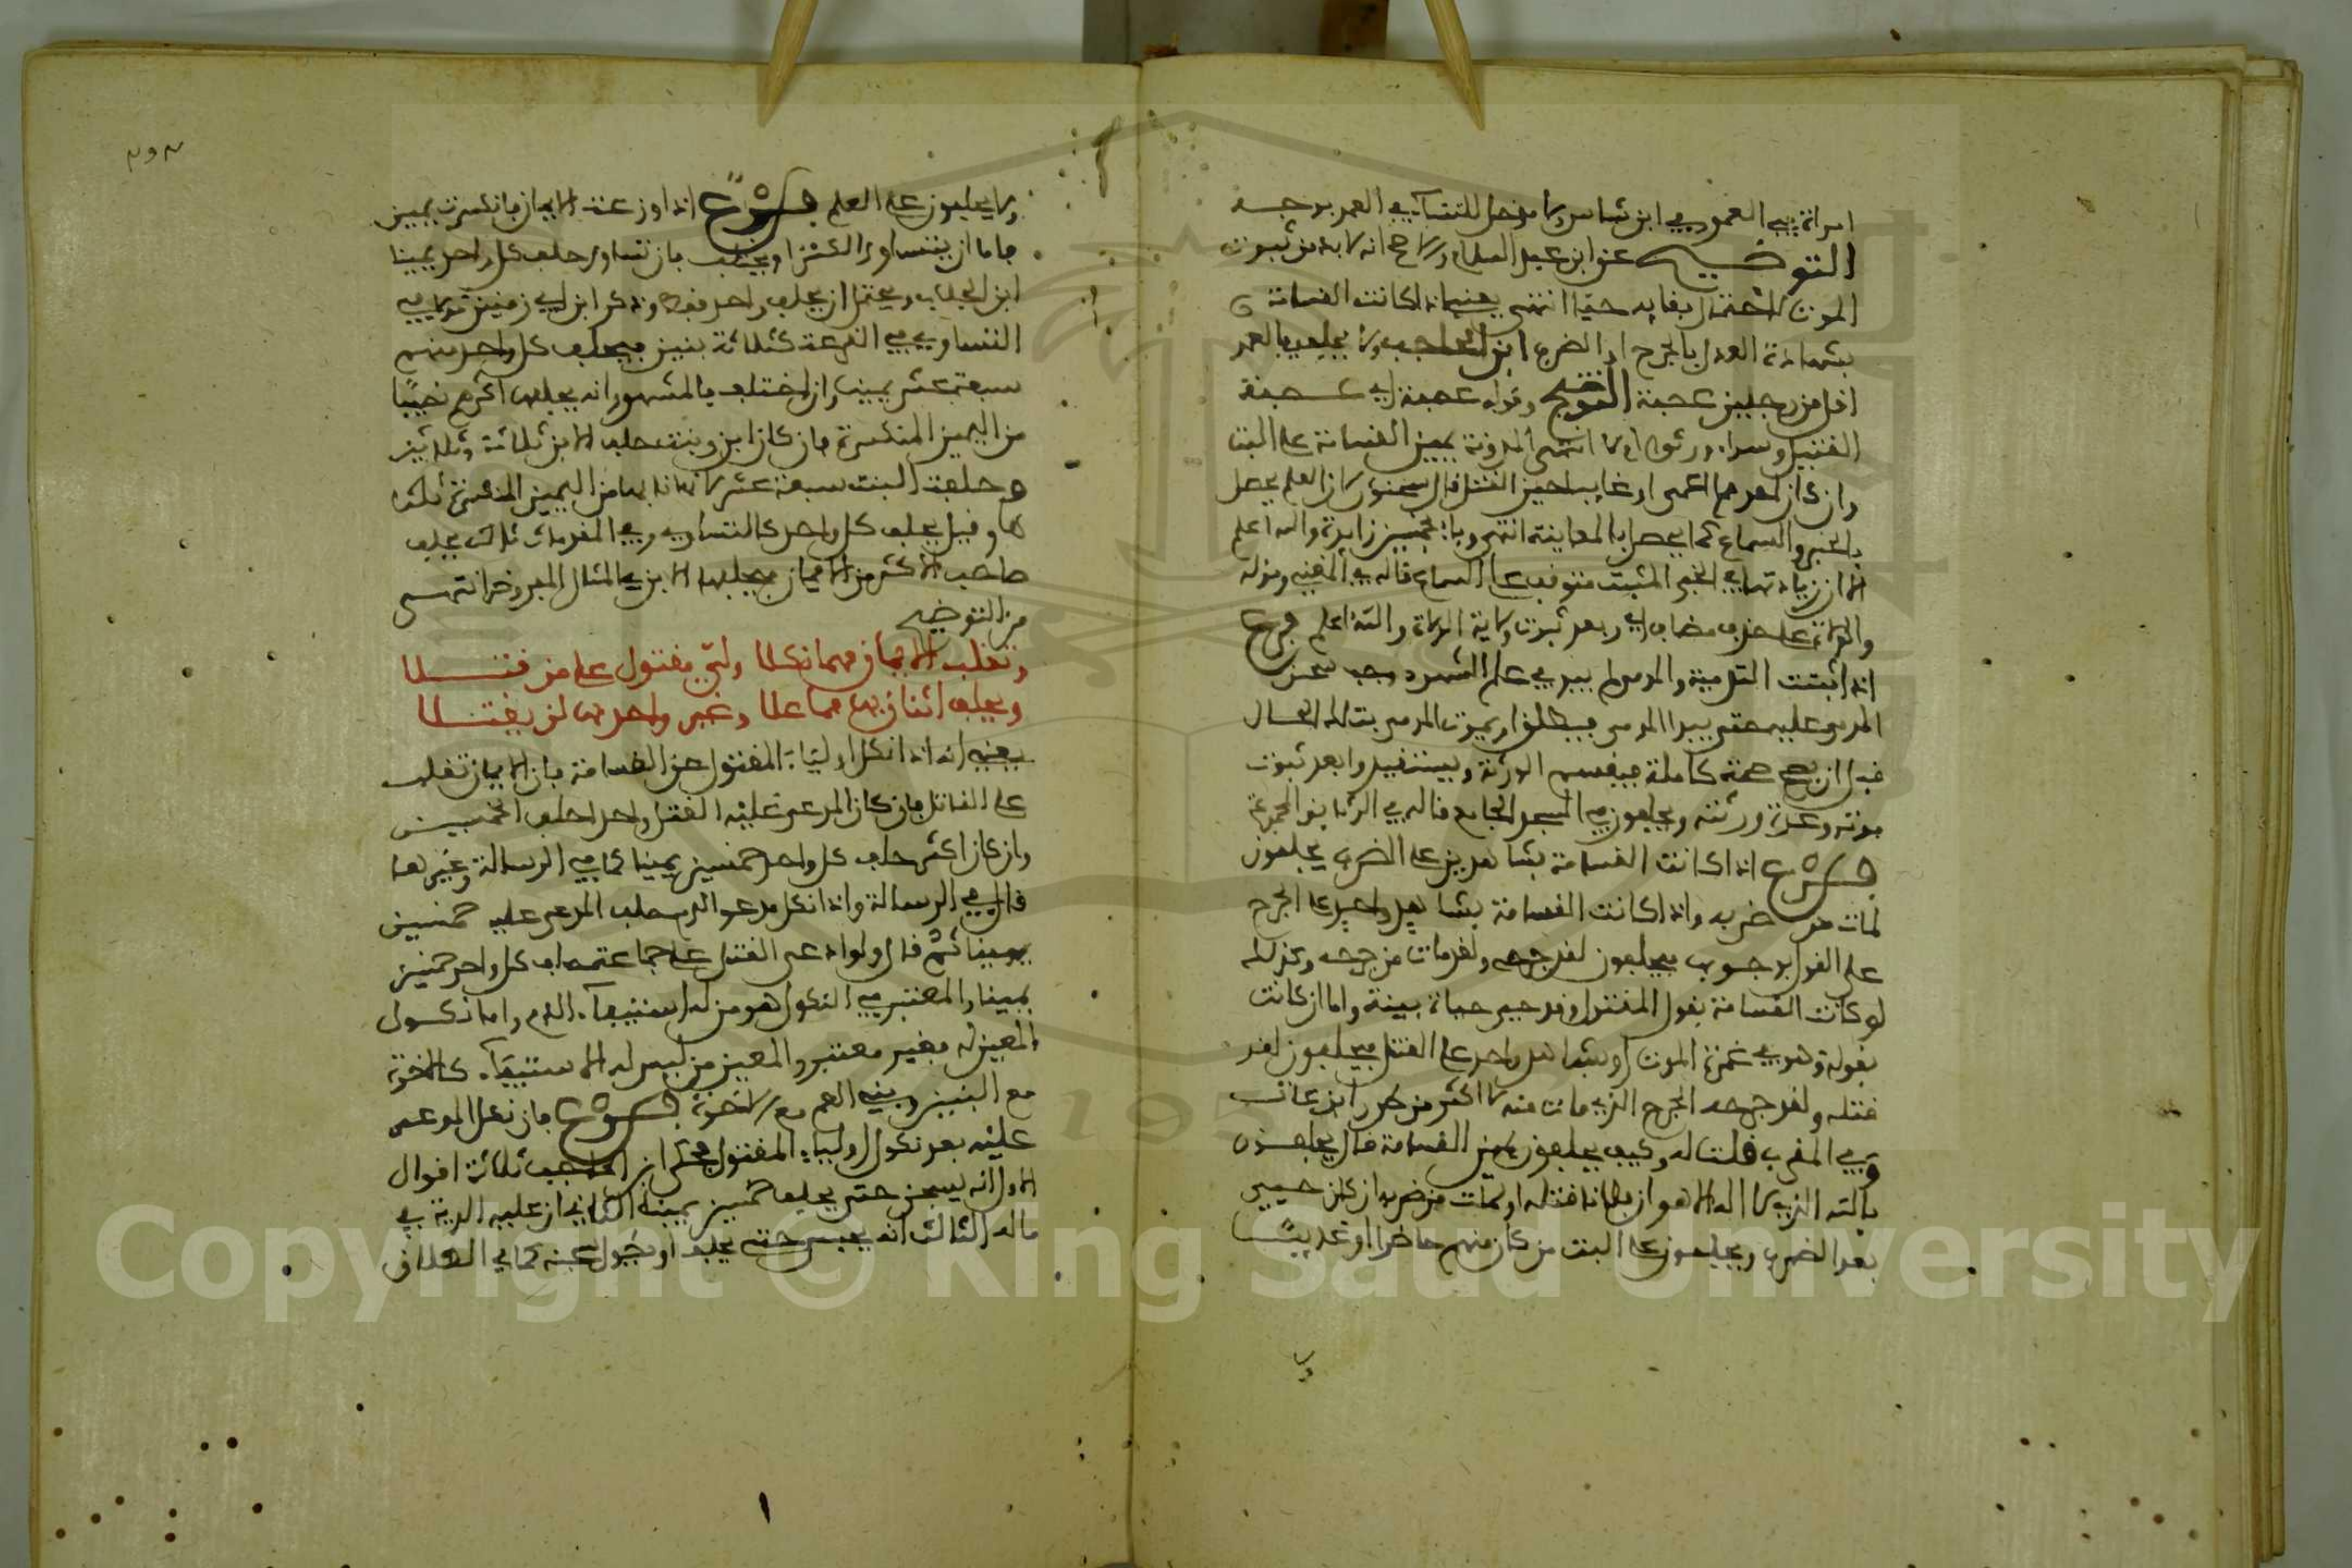 امراة في العمد وفي ابن شاس ولا مدخل للنساء في العمد بوجه
التوضيح عن ابن عبد السلام ولا صح انه لا بد من ثبوت
الموت لاحتمال بقايه حيا انتهى يعني اذا كانت القسامة
بشهادة العدل بالجرح او الضرب ابن الحاجب ولا يحلف في العمد
اقل من رجلين عصبة التوضيح وقوله عصبة اي عصبة
القتيل وسواء ورثوه ام لا انتهى المدونة يمين القسامة على البت
وان كان احدهما اعمى او غايبا حين القتل قال سحنون لان العلم يحصل
بالخبر والسماع كما يحصل بالمعاينة انتهى وبا بخمسين زايدة والله اعلم
الا ان زيادتها في الخبر المثبت متوقف على السماع قاله في المغني وقوله
والولاة على حذف مضاف اي وبعد ثبوت ولاية الولاة والله اعلم فرع
اذا ثبتت التدمية والمدمى لم يبرى على الشهود وجب سجن
المدمى عليه حتى يبرا المدمى فيطلق او يموت المدمى بتلك الحال
قبل ان يصح صحة كاملة فيقسم الورثة ويستقيدوا بعد ثبوت
موته وعدة ورثته ويحلفون في المسجد الجامع قاله في الوثايق المجموعة
فرع اذا كانت القسامة بشاهدين على الضرب يحلفون
لمات من ضربه واذا كانت القسامة بشاهد واحد على الجرح
على القول بوجوب فيحلفون لقد جرحه ولقد مات من جرحه وكذلك
لو كانت القسامة بقول المقتول وقد حيي حياة بينة واما ان كانت
بقوله وهو في غمرة الموت او بشاهد واحد على القتل فيحلفون لقد
قتله ولقد جرحه الجرح الذي مات منه لا اكثر من ابن عات
وفي المغرب قلت له وكيف يحلفون يمين القسامة قال يحلفون
بالله الذي لا اله الا هو ان فلانا قتله او لمات من ضربه ان كان حيي
بعد الضرب ويحلفون على البت من كان منهم حاضرا او غايبا
ولا يحلفون على العلم فرع اذا وزعت الايمان فانكسرت يمين
فاما ان يتساووا الكسر او يختلف فان تساوى حلف كل واحد يمينا
ابن الجلاب ويحتمل ان يحلف واحد فقط وذكر ابن ابي زمنين قولا في
التساوي في القرعة كثلاثة بنين فيحلف كل واحد منهم
سبعة عشر يمينا وان اختلف فالمشهور انه يحلفها اكثرهم نصيبا
من اليمين المنكسرة فان كان ابن وبنت حلف الابن ثلاثة وثلاثين
وحلفت البنت سبعة عشر لان نابها من اليمين المنكسرة ثلثا
ها وقيل يحلف كل واحد كالتساوي وفي المقدمات ثالث يحلف
صاحب الاكثر من الايمان فيحلفها الابن في المثال المفروض انتهى
من التوضيح
وتقلب الايمان مهما نكلا ولي مقتول على من قتلا
ويحلف اثنان بها فما علا وغير واحد بها لن يقتلا
يعني انه اذا نكل اولياء المقتول عن القسامة فان الايمان تقلب
على القاتل فان كان المدعى عليه القتل واحدا حلف الخمسين
وان كان اكثر حلف كل واحد خمسين يمينا كما في الرسالة وغيرها
قال في الرسالة واذا نكل مدعوا الدم حلف المدعى عليه خمسين
يمينا ثم قال ولو ادعى القتل على جماعة حلف كل واحد خمسين
يمينا والمعتبر في النكول هو من له استيفاء الدم واما نكول
المعين له فغير معتبر والمعين من ليس له الاستيفاء كالاخوة
مع البنين وبني العم مع الاخوة فرع فان نكل المدعى
عليه بعد نكول اولياء المقتول فحكى ابن الحاجب ثلاثة اقوال
الاول انه يسجن حتى يحلف خمسين يمينا الثاني ان عليه الدية في
ماله الثالث انه يحبس حتى يحلف او يطول سجنه كما في الطلاق